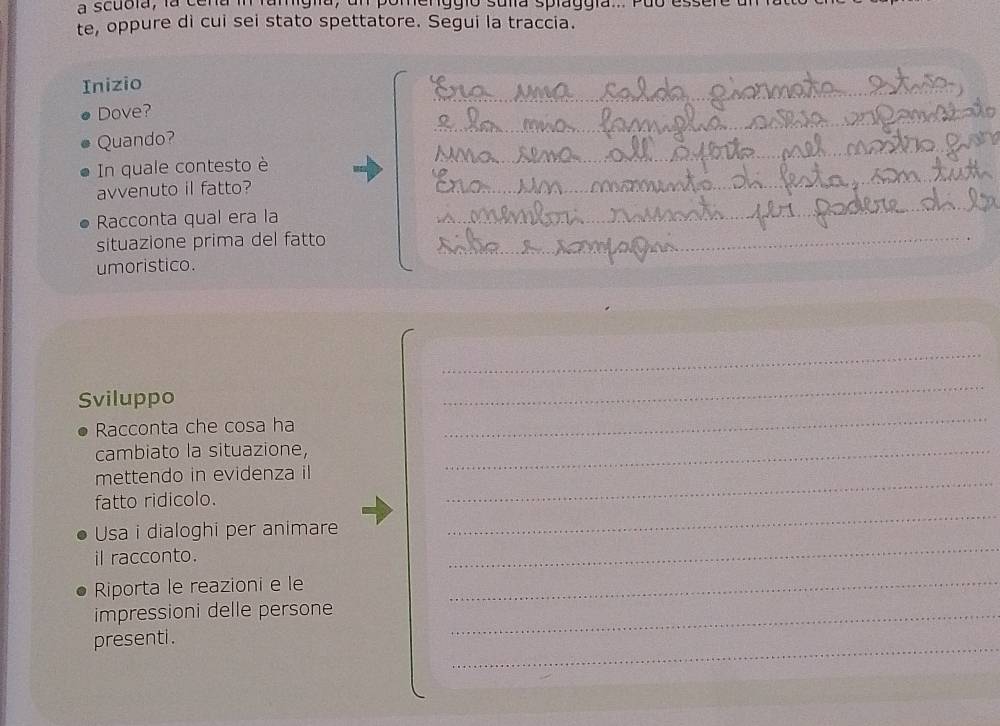 a scuola, la cena in famiglia, un pomeriggio sulla spiaggia... Può essere un fatto che
te, oppure di cui sei stato spettatore. Segui la traccia.
Inizio
• Dove?
• Quando?
• In quale contesto è
avvenuto il fatto?
• Racconta qual era la
situazione prima del fatto
umoristico.
Era una calda giornata estiva,
e la mia famiglia aveva organizzato
una cena all'aperto nel nostro
Era un momento di festa, con tutti
i membri riuniti per godere di
cibo e compagni
Sviluppo
• Racconta che cosa ha
cambiato la situazione,
mettendo in evidenza il
fatto ridicolo.
• Usa i dialoghi per animare
il racconto.
• Riporta le reazioni e le
impressioni delle persone
presenti.